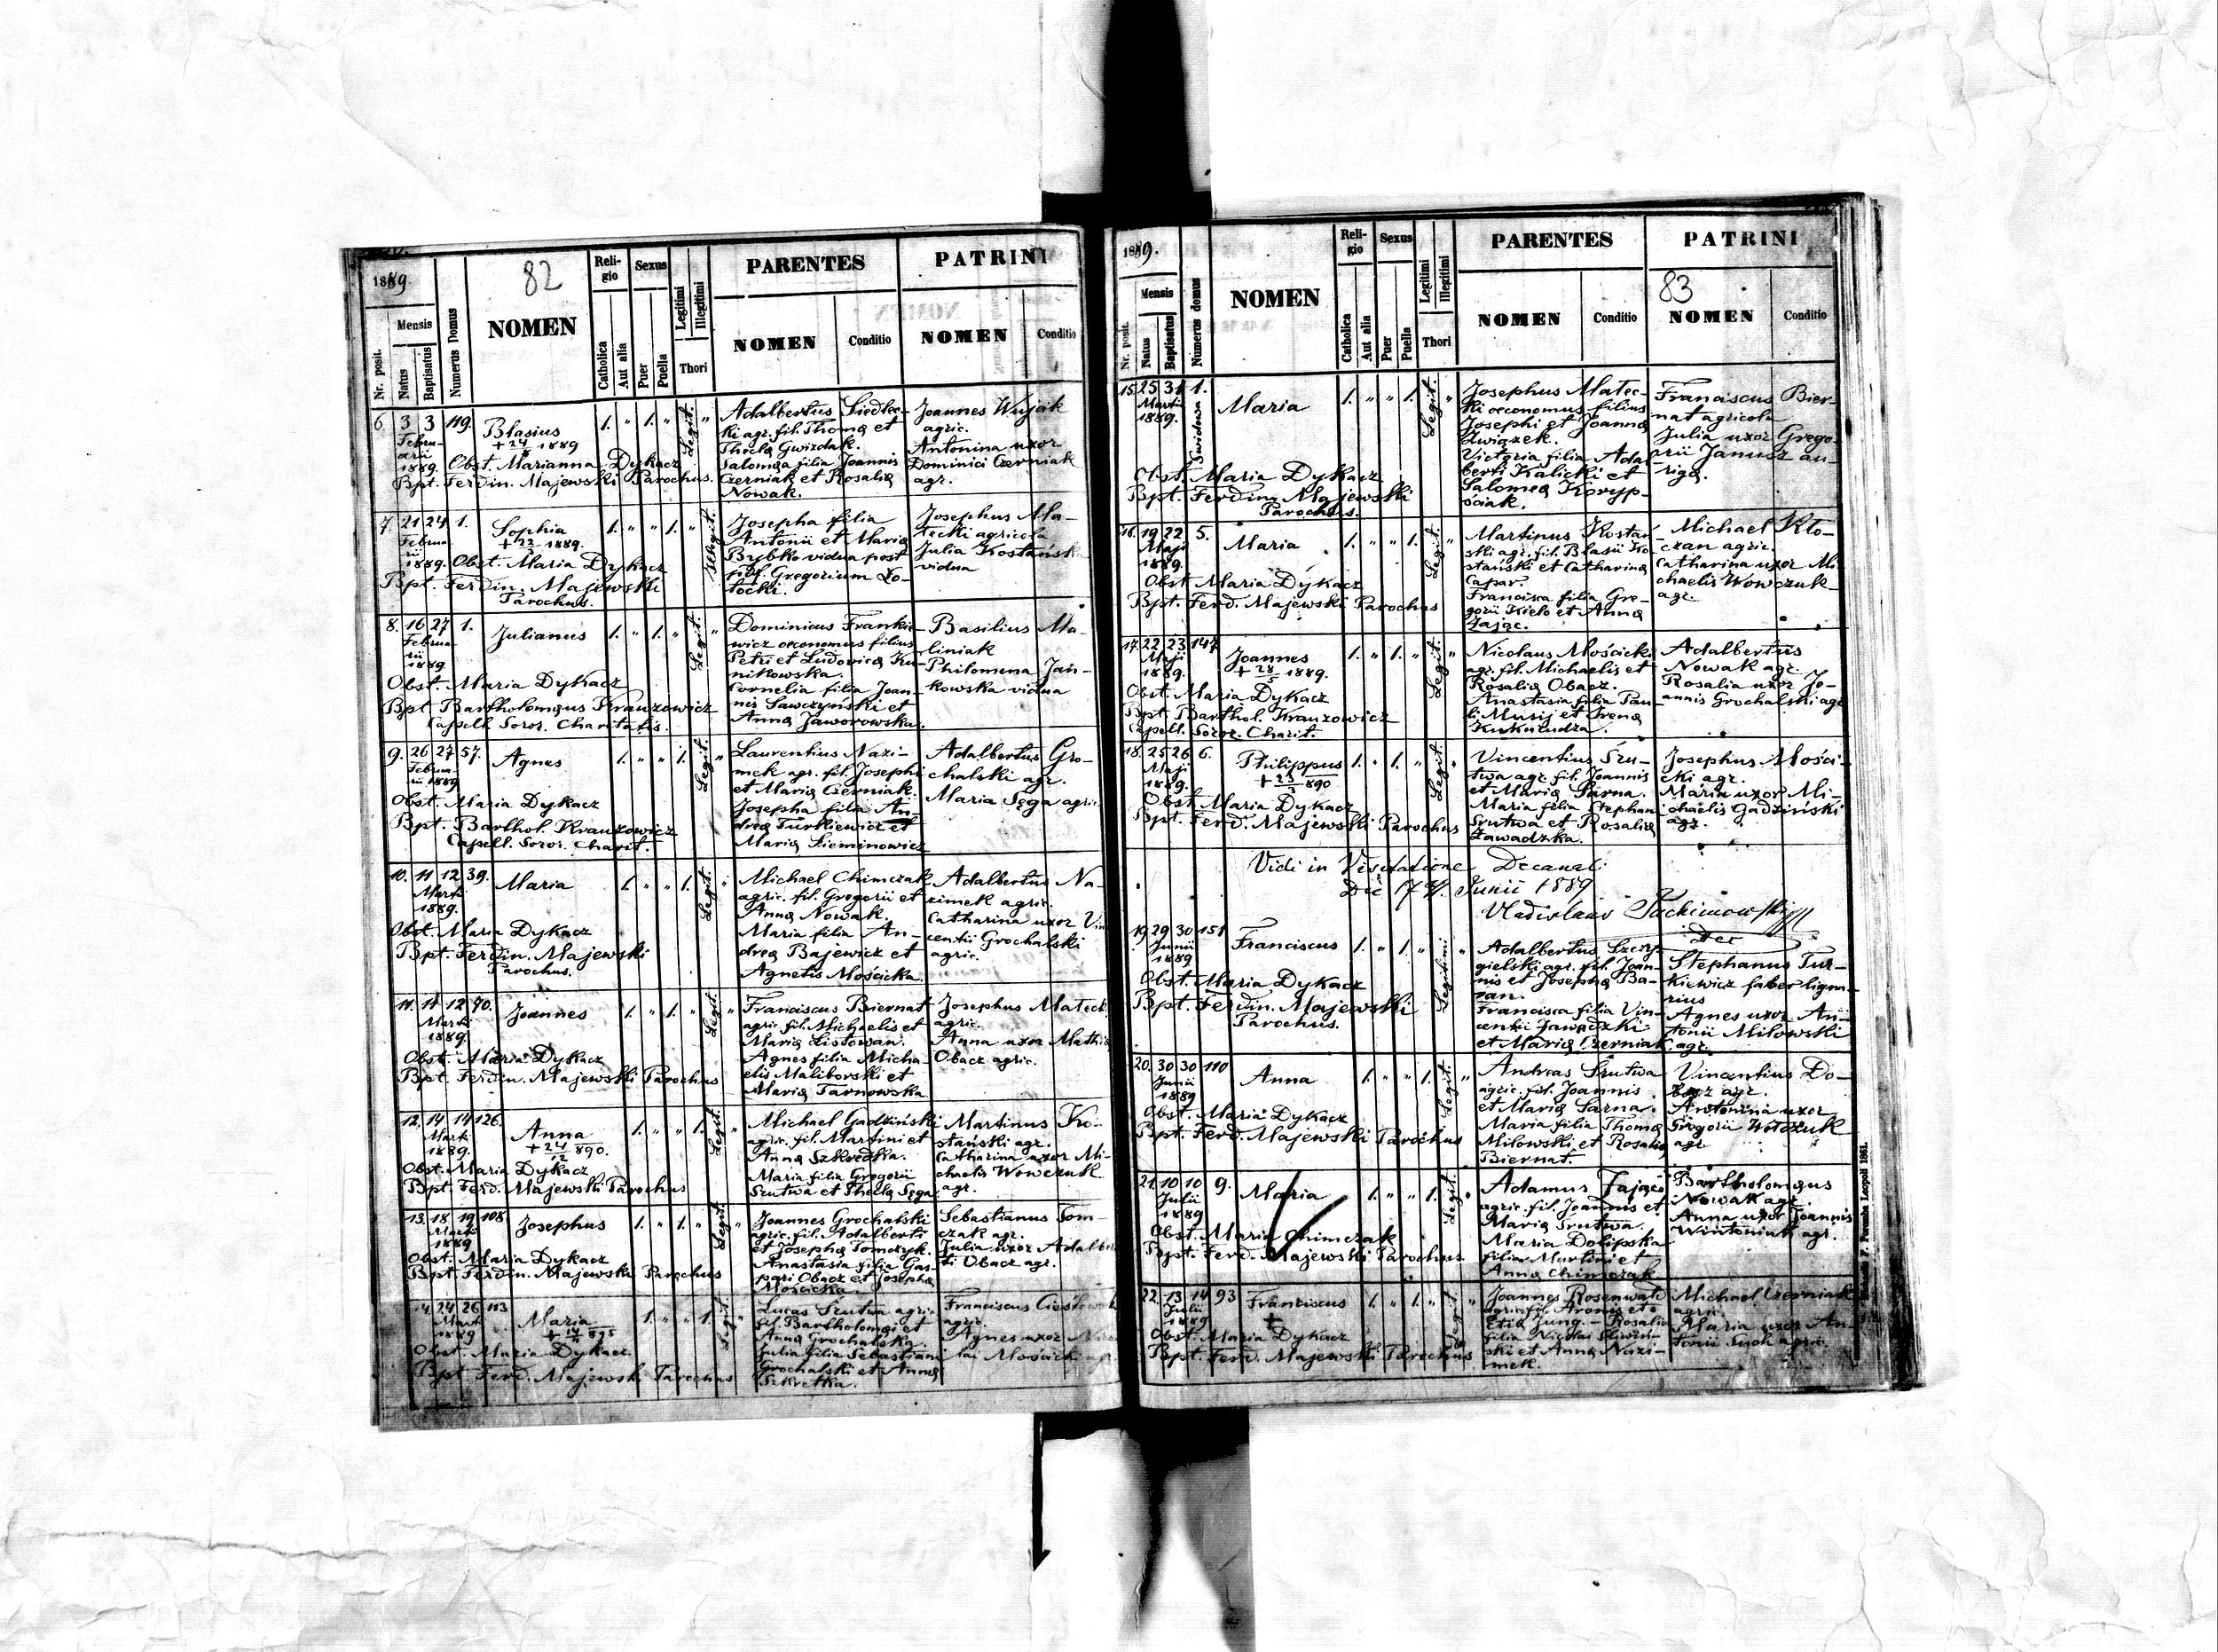 1889.
82
Nr. posit.
Mensis
Natus
Baptisatus
Numerus Domus
NOMEN
Religio
Catholica
Aut alia
Sexus
Puer
Puella
Legitimi
Illegitimi
Thori
PARENTES
NOMEN
Conditio
PATRINI
NOMEN
Conditio
6. 3 3 119.
Februarii
1889.
Blasius
1889
Obst. Marianna Dykacz
Bpt. Ferdin. Majewski Parochus.
1. " 1. " Legit. "
Adalbertus Siedlec-
ki agr. fil. Thomę et
Theclę Gwizdak.
Salomęa filia Joannis
Czerniak et Rosalię
Nowak.
Joannes Wujak
agric.
Antonina uxor
Dominici Czerniak
agr.
7. 21 24 1.
Februarii
1889.
Sophia
1889.
Obst. Maria Dykacz
Bpt. Ferdin. Majewski
Parochus.
1. " " 1. " Illegit.
Josepha filia
Antonii et Marię
Brybko vidua post
Gregorium Ło-
tocki.
Josephus Ma-
tecki agricola
Julia Kostańska
vidua
8. 16 27 1.
Februarii
1889.
Julianus
Obst. Maria Dykacz
Bpt. Bartholomęus Kranzowicz
Capell. Soror. Charitatis.
1. " 1. " Legit. "
Dominicus Frankie-
wicz oeconomus filius
Petri et Ludovicę Ku-
nikowska.
Cornelia filia Joan-
nis Sawczyński et
Annę Jaworowska.
Basilius Ma-
liniak
Philomena Jan-
kowska vidua
9. 26 27 57.
Februarii 1889
Agnes
Obst. Maria Dykacz
Bpt. Barthol. Kranzowicz
Capell. Soror. Charit.
1. " " 1. Legit. "
Laurentius Nazi-
mek agr. fil. Josephi
et Marię Czerniak.
Josepha filia An-
dreę Turkiewicz et
Marię Sieminowicz
Adalbertus Gro-
chalski agr.
Maria Sęga agric.
10. 11 12 39.
Martii
1889.
Maria
Obst. Maria Dykacz
Bpt. Ferdin. Majewski
Parochus.
1. " " 1. Legit. "
Michael Chimczak
agric. fil. Gregorii et
Annę Nowak.
Maria filia An-
dreę Bajewicz et
Agnetis Mościcka.
Adalbertus Na-
zimek agric.
Catharina uxor Vin
centii Grochalski
agric.
11. 11 12 70.
Martii
1889.
Joannes
Obst. Maria Dykacz
Bpt. Ferdin. Majewski Parochus
1. " 1. " Legit. "
Franciscus Biernat
agric. fil. Michaelis et
Marię Listowan.
Agnes filia Micha-
elis Maliborski et
Marię Tarnowska.
Josephus Matecki
agric.
Anna uxor Mathię
Obacz agric.
12. 14 14 126.
Martii
1889.
Anna
+ 24/12 890.
Obst. Maria Dykacz
Bpt. Ferd. Majewski Parochus
1. " " 1. Legit. "
Michael Gadziński
agric. fil. Martini et
Annę Szkredka.
Maria filia Gregorii
Szutwa et Theclę Sęga.
Martinus Ko-
stański agr.
Catharina uxor Mi-
chaelis Wowczuk
agr.
13. 18 19 108
Martii
1889
Josephus
Obst. Maria Dykacz
Bpt. Ferdin. Majewski Parochus
1. " 1. " Legit. "
Joannes Grochalski
agric. fil. Adalberti
et Josephę Tomczyk.
Anastasia filia Gas-
pari Obacz et Josephę
Mościcka.
Sebastianus Tom-
czak agr.
Julia uxor Adalber
ti Obacz agr.
14. 24 26 113
Martii
1889
Maria
Obst. Maria Dykacz.
Bpt. Ferd. Majewski Parochus
1. " " 1. Legit. "
Lucas Szutwa agric.
fil. Bartholomęi et
Annę Grochalska.
Julia filia Sebastiani
Grochalski et Annę
Szkretka.
Franciscus
agric.
Agnes uxor
lai Mościcki
1889.
Nr. posit.
Mensis
Natus
Baptisatus
Numerus domus
NOMEN
Religio
Catholica
Aut alia
Sexus
Puer
Puella
Legitimi
Illegitimi
Thori
PARENTES
NOMEN
Conditio
PATRINI
83
NOMEN
Conditio
15. 25 31 1.
Martii
1889.
Maria
Obst. Maria Dykacz
Bpt. Ferdin. Majewski
Parochus.
1. " " 1. Legit. "
Josephus Matec-
ki oeconomus filius
Josephi et Joannę
Związek.
Victoria filia Adal
berti Kalicki et
Salomeę Koryp-
ściak.
Franciscus Bier-
nat agricola
Julia uxor Grego-
rii Janusz au-
rigę.
16. 19 22 5.
Maji
1889.
Maria
Obst. Maria Dykacz
Bpt. Ferd. Majewski Parochus
1. " " 1. Legit. "
Martinus Kostań-
ski agr. fil. Blasii Ko-
stański et Catharinę
Capar.
Francisca filia Gre-
gorii Kielo et Annę
Zając.
Michael Kło-
czan agric.
Catharina uxor Mi-
chaelis Wowczuk
agr.
17. 22 23 147
Maji
1889.
Joannes
+ 28/5 1889.
Obst. Maria Dykacz
Bpt. Barthol. Kranzowicz
Capell. Soror. Charit.
1. " 1. " Legit. "
Nicolaus Mościcki
agr. fil. Michaelis et
Rosalię Obacz.
Anastasia filia Pau
li Musij et Irenę
Kukurudza.
Adalbertus
Nowak agr.
Rosalia uxor Jo-
annis Grochalski agr
18. 25 26 6.
Maji
1889.
Philippus
Obst. Maria Dykacz
Bpt. Ferd. Majewski Parochus
1. " 1. " Legit. "
Vincentius Szu-
twa agr. fil. Joannis
et Marię Sarna.
Maria filia Stephani
Szutwa et Rosalię
Zawadzka.
Josephus Mości-
cki agr.
Maria uxor Mi-
chaelis Gadziński
agr.
Vidi in Visitatione Decanali
Die 17 Junii 1889
19. 29 30 151
Junii
1889
Franciscus
Obst. Maria Dykacz
Bpt. Ferdin. Majewski
Parochus.
1. " 1. " Legitimi "
Adalbertus
gielski agr. fil. Joan-
nis et Josephę Ba-
ran.
Francisca filia Vin-
centii Zawadzki
et Marię Czerniak.
Stephanus Tur-
kiewicz faber ligna-
rius
Agnes uxor An-
tonii Milowski
agr.
20. 30 30 110
Junii
1889
Anna
Obst. Maria Dykacz
Bpt. Ferd. Majewski Parochus
1. " " 1. Legit. "
Andreas Szutwa
agric. fil. Joannis
et Marię Sarna.
Maria filia Thomę
Milowski et Rosalię
Biernat.
Vincentius Do-
agr.
Antonina uxor
Gregorii
agr
21. 10 10 9.
Julii
1889
Maria
Obst. Maria Chimczak
Bpt. Ferd. Majewski Parochus
1. " " 1. Legit. "
Adamus Zając
agric. fil. Joannis et
Marię Szutwa.
Maria Dolipska
filia Martini et
Annę Chimczak
Bartholomęus
Nowak agr.
Anna uxor Joannis
Wintoniak agr.
22. 13 14 93
Julii
1889
Franciscus
+
Obst. Maria Dykacz
Bpt. Ferd. Majewski Parochus
1. " 1. " Legit. "
Joannes Rosenwald
agric. fil. Aronis et
Jung. - Rosalia
filia Nicolai Sliwiń-
ski et Annę Nazi-
mek.
Michael Czerniak
agric.
Maria uxor An-
tonii agric.